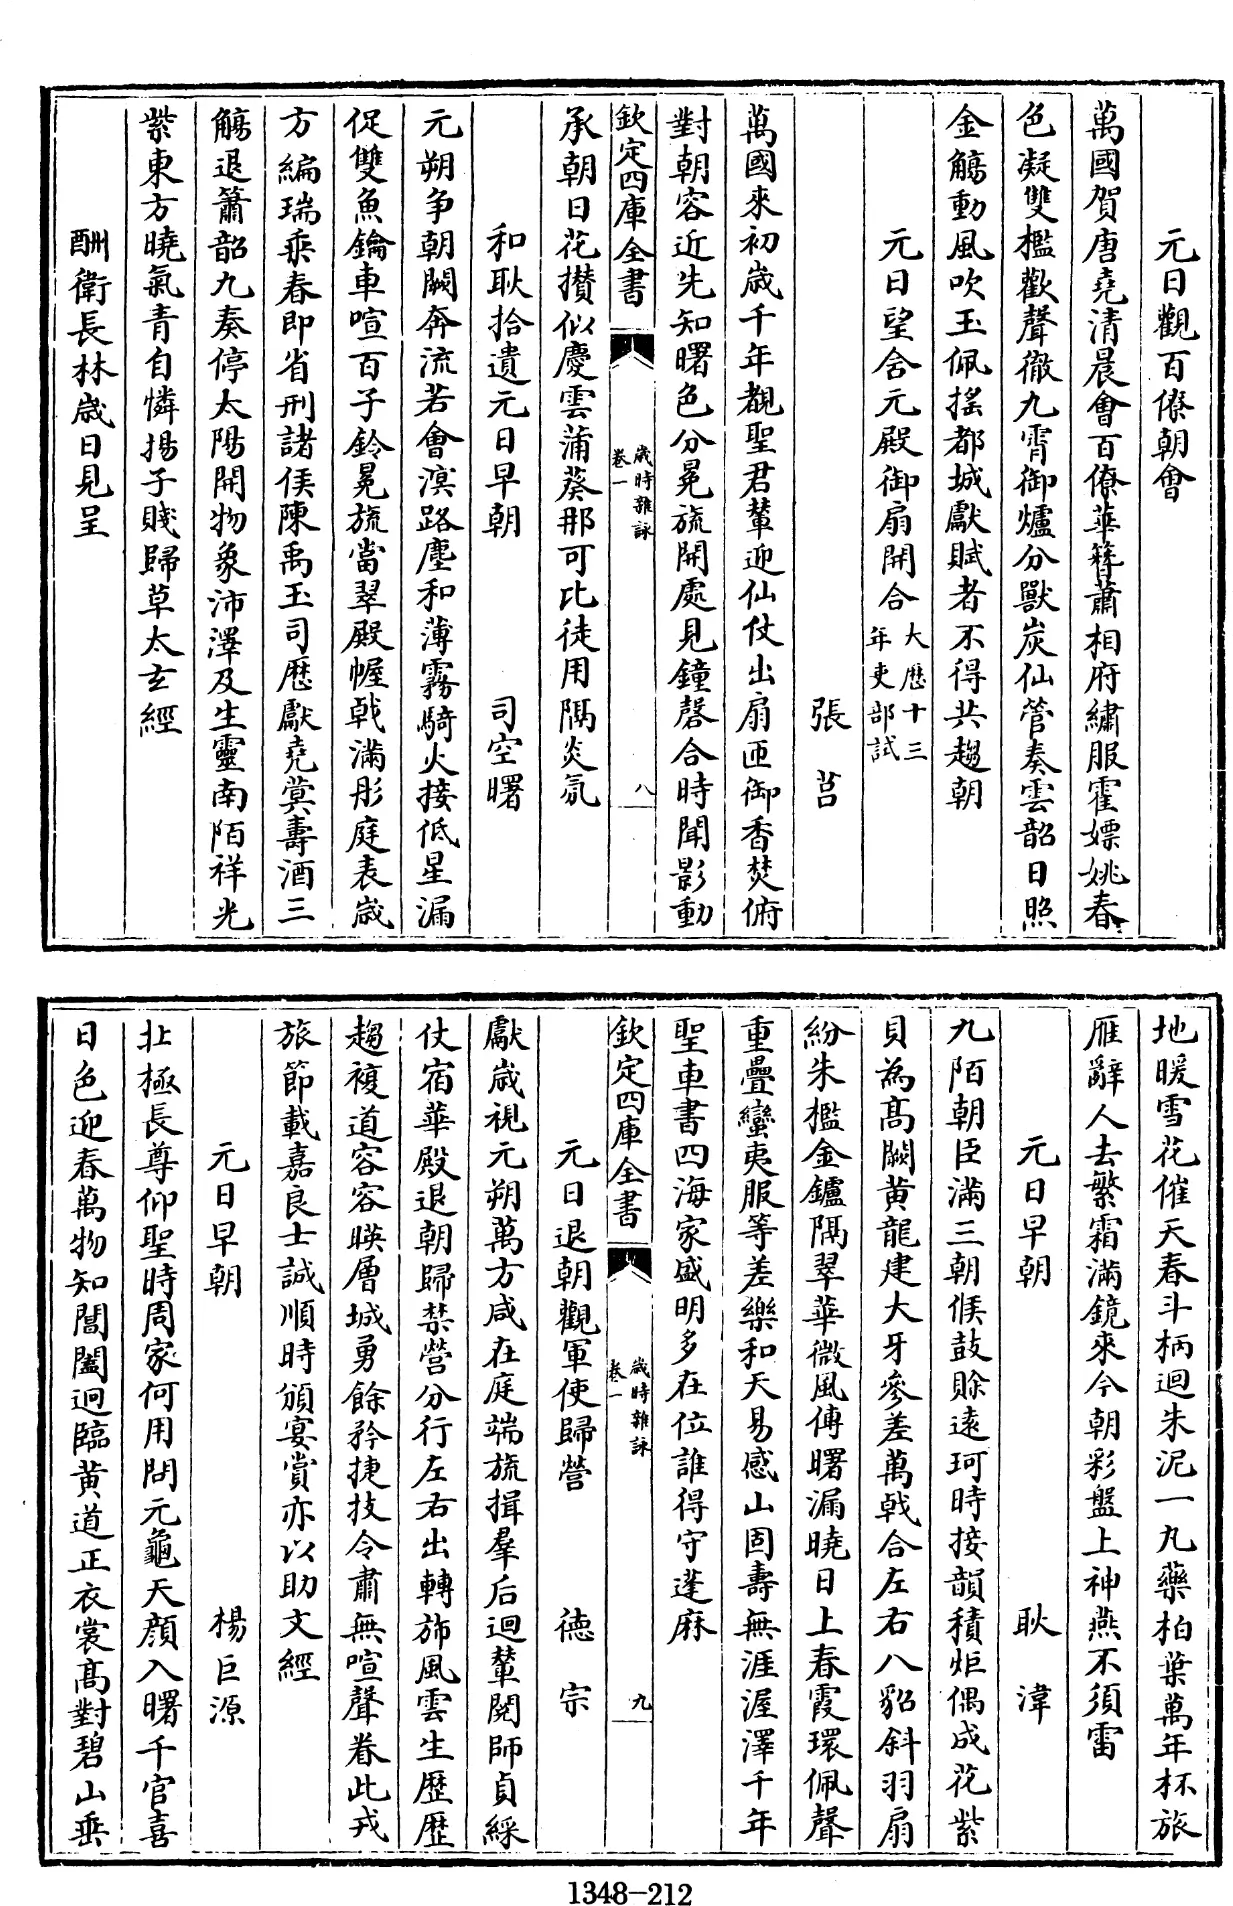 元日觀百僚朝會
萬國賀唐堯清晨會百僚華簪蕭相府繡服霍嫖姚春
色凝雙檻歡聲徹九霄御爐分獸炭仙管奏雲韶日照
金觴動風吹玉佩搖都城獻賦者不得共趨朝
元日望含元殿御扇開合大厯十三年吏部試
張莒
萬國來初歳千年覩聖君輦迎仙仗出扇匝御香焚俯
對朝容近先知曙色分冕旒開處見鐘磬合時聞影動
欽定四庫全書
歳時雜詠
卷一
八
承朝日花攢似慶雲蒲葵那可比徒用隔炎氛
和耿拾遺元日早朝
司空曙
元朔争朝闕奔流若㑹溟路塵和薄霧騎火接低星漏
促雙魚鑰車喧百子鈴冕旒當翠殿幄戟滿彤庭表歳
方編瑞乘春即省刑諸侯陳禹玉司厯獻堯蓂壽酒三
觴退簫韶九奏停太陽開物象沛澤及生靈南陌祥光
紫東方曉氣青自憐揚子賤歸草太玄經
酬衛長林歳日見呈
地暖雪花催天春斗柄迴朱泥一丸藥柏葉萬年杯旅
雁辭人去繁霜滿鏡來今朝彩盤上神燕不須雷
元日早朝
耿湋
九陌朝臣滿三朝候鼓賖遠珂時接韻積炬偶成花紫
貝為髙闕黄龍建大牙參差萬戟合左右八貂斜羽扇
紛朱檻金鑪隔翠華微風傳曙漏曉日上春霞環佩聲
重疊蠻夷服等差樂和天易感山固壽無涯渥澤千年
聖車書四海家盛明多在位誰得守蓬麻
欽定四庫全書
歳時雜詠
卷一
九
元日退朝觀軍使歸營
德宗
獻歳視元朔萬方咸在庭端旒揖羣后迴輦閱師貞綵
仗宿華殿退朝歸禁營分行左右出轉斾風雲生歴歴
趨複道容容暎層城勇餘矜捷技令肅無喧聲眷此戎
旅節載嘉良士誠順時頒宴賞亦以助文經
元日早朝
楊巨源
北極長尊仰聖時周家何用問元龜天顔入曙千官喜
日色迎春萬物知閶闔迥臨黄道正衣裳髙對碧山垂
1348-212